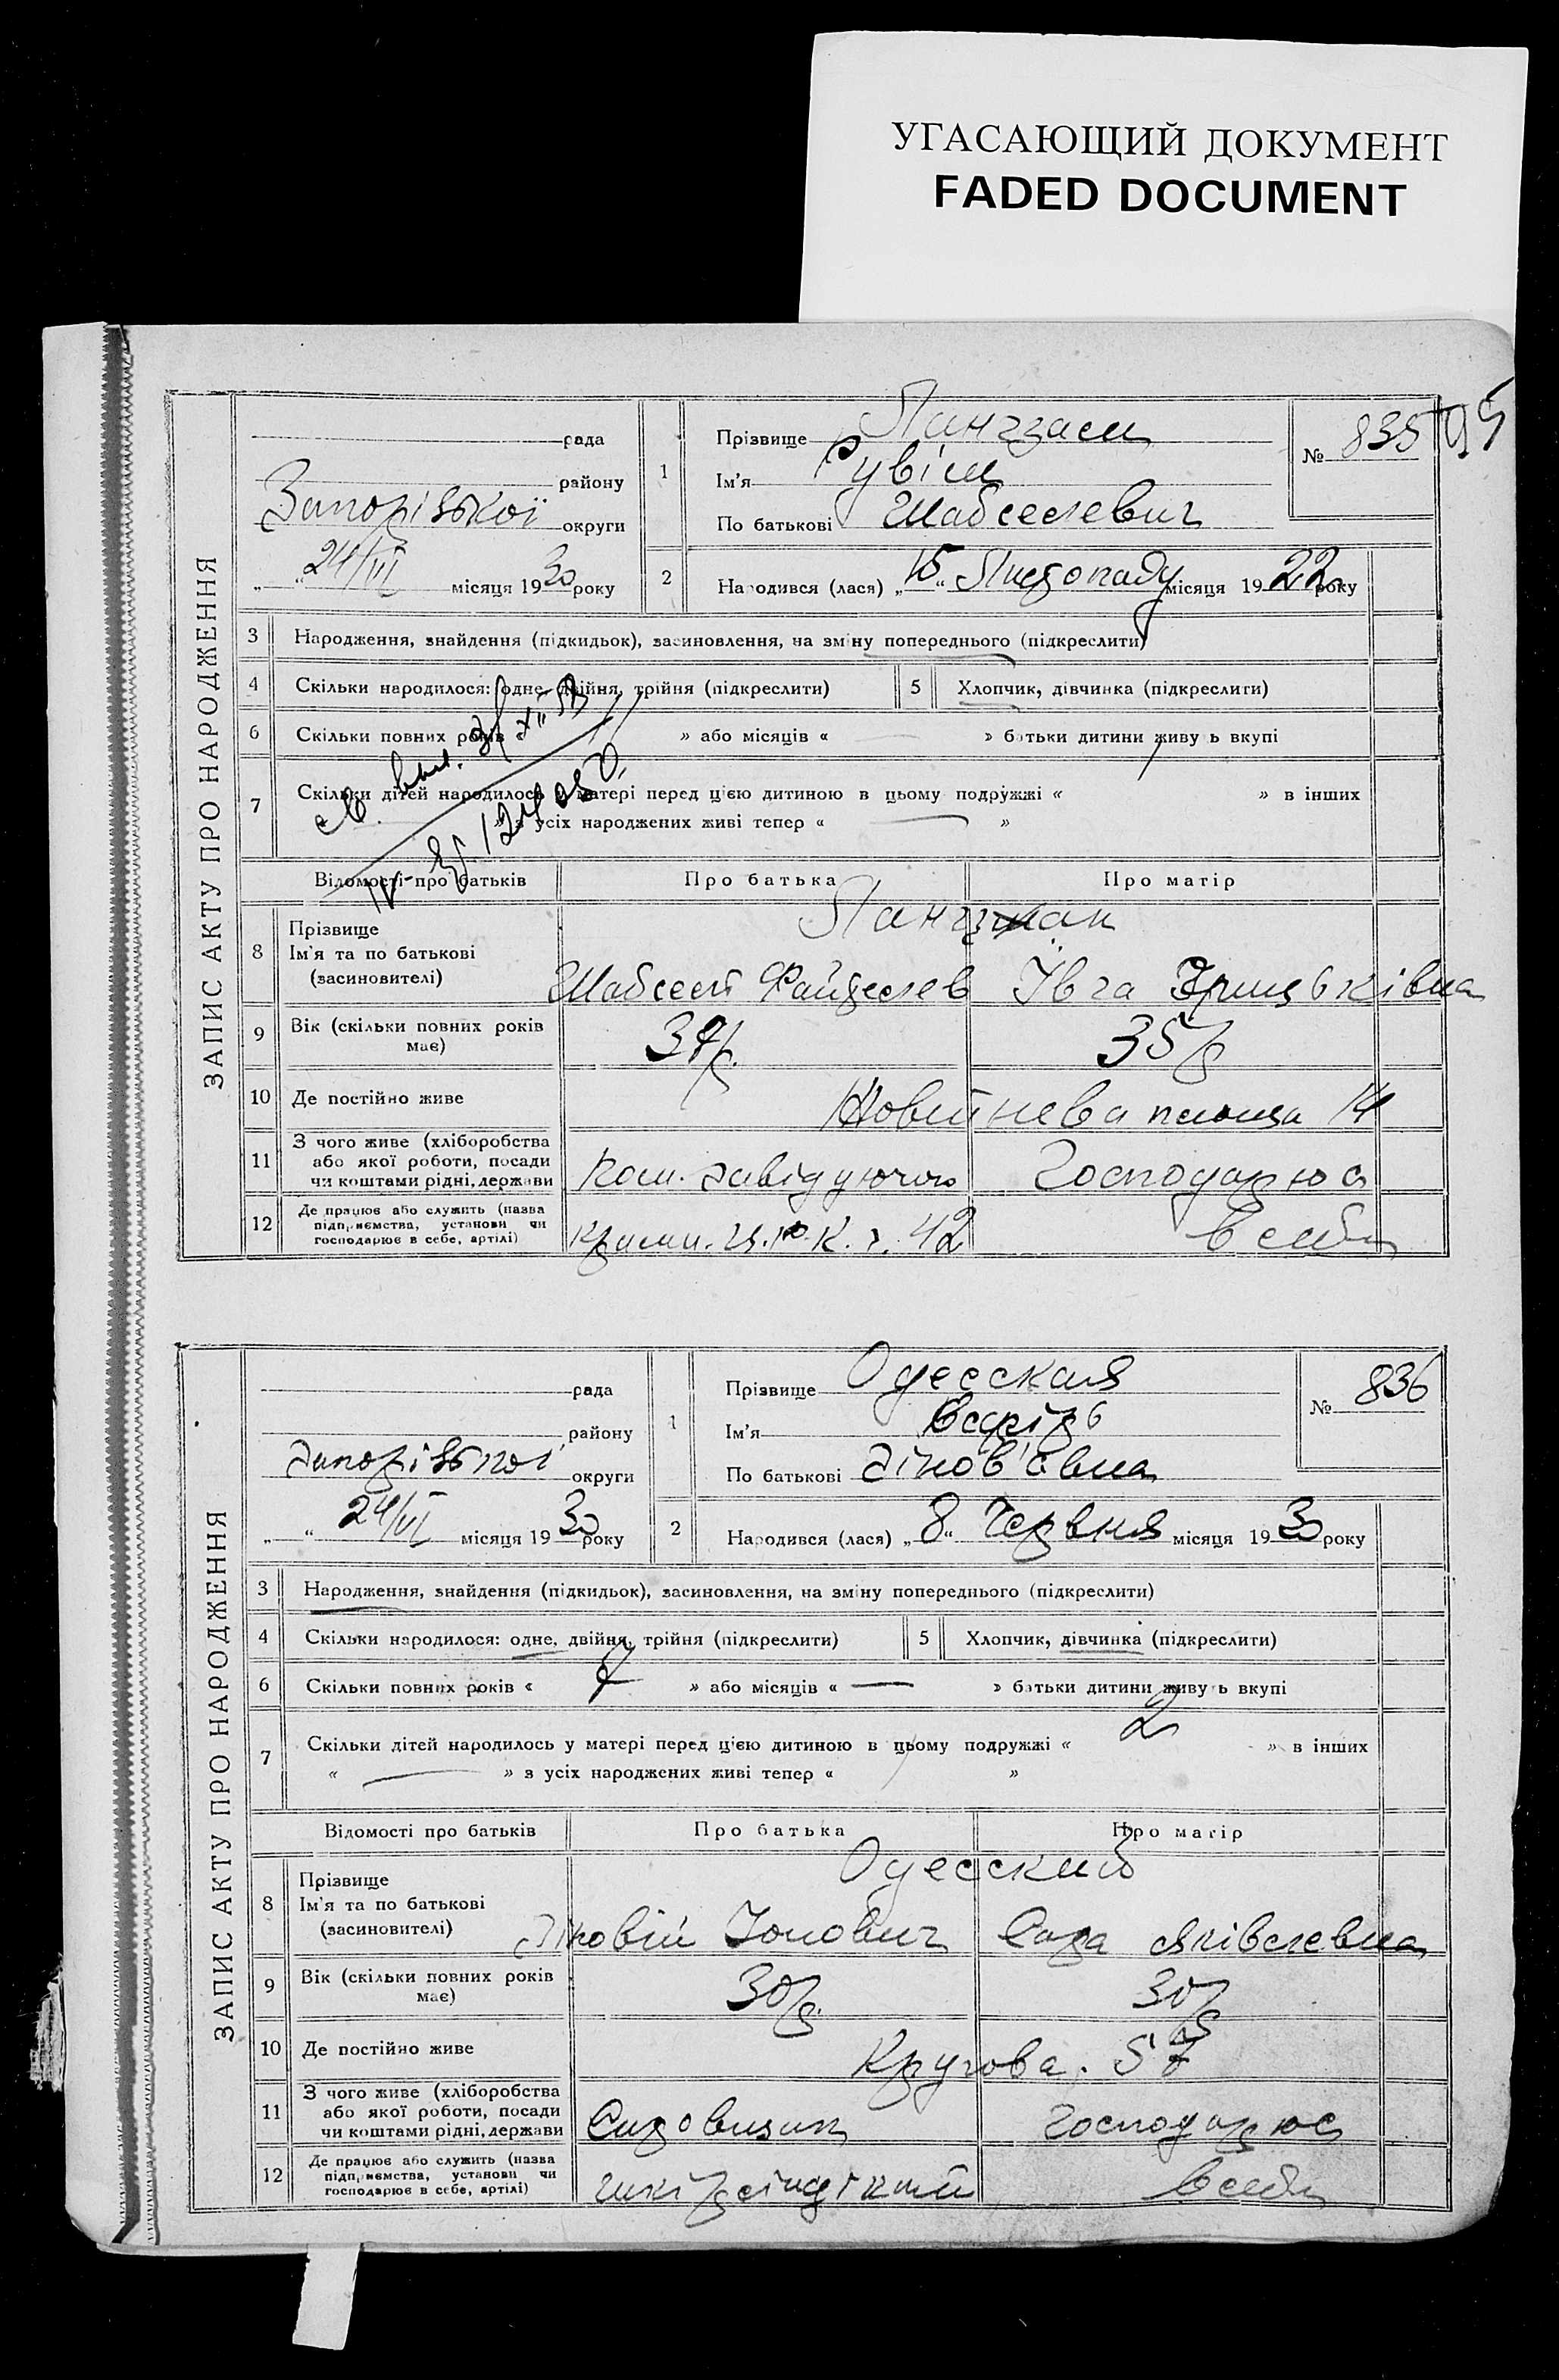 УГАСАЮЩИЙ ДОКУМЕНТ
FADED DOCUMENT
95
ЗАПИС АКТУ ПРО НАРОДЖЕННЯ
рада
району
Запорізької округи
„ “ 24/VI місяця 1930 року
1
Прізвище Лангзам
Ім'я Рувім
По батькові Шабселевич
№ 835
2
Народився (лася) „15“ Листопаду місяця 1922 року
3 Народження, знайдення (підкидьок), засиновлення, на зміну попереднього (підкреслити)
4 Скільки народилося: одне, двійня, трійня (підкреслити)
5 Хлопчик, дівчинка (підкреслити)
6 Скільки повних років « 11 » або місяців « » батьки дитини живуть вкупі
7 Скільки дітей народилось у матері перед цією дитиною в цьому подружжі « » в інших
» з усіх народжених живі тепер « »
Відомості про батьків
Про батька
Про матір
8 Прізвище
Ім'я та по батькові
(засиновителі)
Шабсель
9 Вік (скільки повних років має)
35 р
10 Де постійно живе
площа 14
11 З чого живе (хліборобства або якої роботи, посади чи коштами рідні, держави
Пом. завідуючого
Господарює
12 Де працює або служить (назва підприємства, установи чи господарює в себе, артілі)
42
в себе
ЗАПИС АКТУ ПРО НАРОДЖЕННЯ
рада
району
Запорізької округи
„ “ 24/VI місяця 1930 року
1
Прізвище Одесская
Ім'я
По батькові Зінов'євна
№ 836
2
Народився (лася) „8“ Червня місяця 1930 року
3 Народження, знайдення (підкидьок), засиновлення, на зміну попереднього (підкреслити)
4 Скільки народилося: одне, двійня, трійня (підкреслити)
5 Хлопчик, дівчинка (підкреслити)
6 Скільки повних років « 7 » або місяців « — » батьки дитини живуть вкупі
7 Скільки дітей народилось у матері перед цією дитиною в цьому подружжі « 2 » в інших
« — » з усіх народжених живі тепер « »
Відомості про батьків
Про батька
Про матір
8 Прізвище
Ім'я та по батькові
(засиновителі)
Одесский
Зіновій Іонович
Сара Яківлевна
9 Вік (скільки повних років має)
30 р.
30 р
10 Де постійно живе
Кругова. 57
11 З чого живе (хліборобства або якої роботи, посади чи коштами рідні, держави
Господарює
12 Де працює або служить (назва підприємства, установи чи господарює в себе, артілі)
в себе